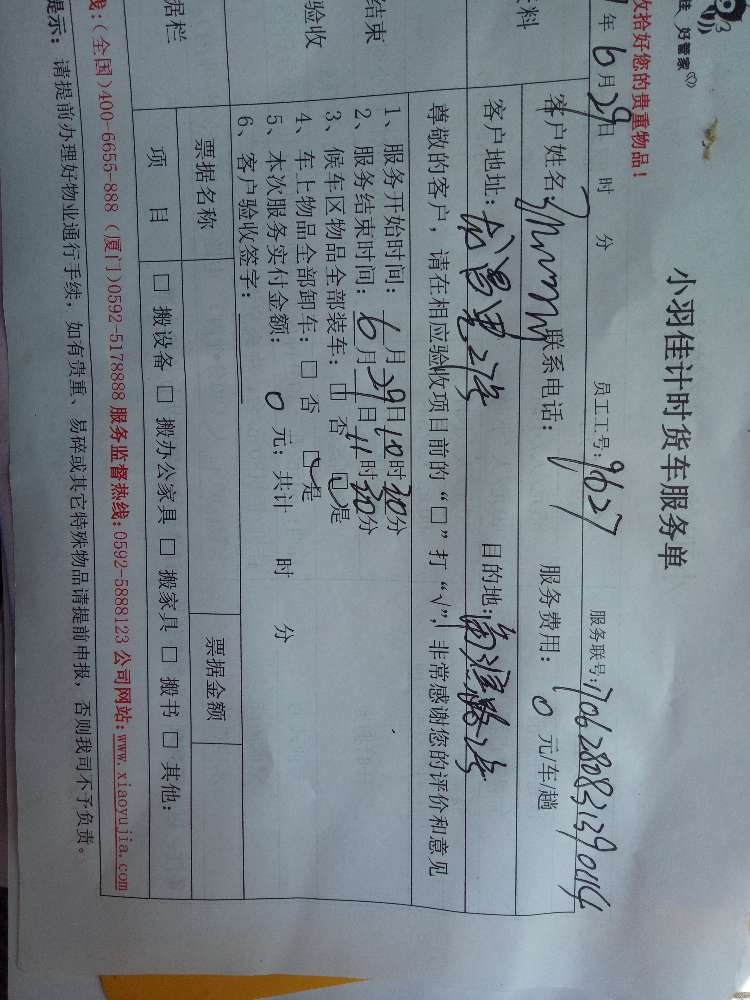 佳 好管家
收拾好您的贵重物品!
小羽佳计时货车服务单
年6月29日 时 分 员工工号:9627 服务联号:
客户姓名: 联系电话: 服务费用: 0 元/车/趟
客户地址: 目的地:
尊敬的客户, 请在相应验收项目前的“□”打“√”, 非常感谢您的评价和意见
结束
验收
1、服务开始时间: 6月29日10时30分
2、服务结束时间: 6月29日11时30分
3、候车区物品全部装车: □ 否 □是
4、车上物品全部卸车: □ 否 □是
5、本次服务实付金额: 0 元; 共计 时 分
6、客户验收签字:
据栏
票据名称 票据金额
项 目 □ 搬设备 □ 搬办公家具 □ 搬家具 □ 搬书 □ 其他:
线:(全国)400-6655-888 (厦门)0592-5178888 服务监督热线:0592-5888123 公司网站:www.xiaoyujia.com
提示: 请提前办理好物业通行手续, 如有贵重、易碎或其它特殊物品请提前申报, 否则我司不予负责。